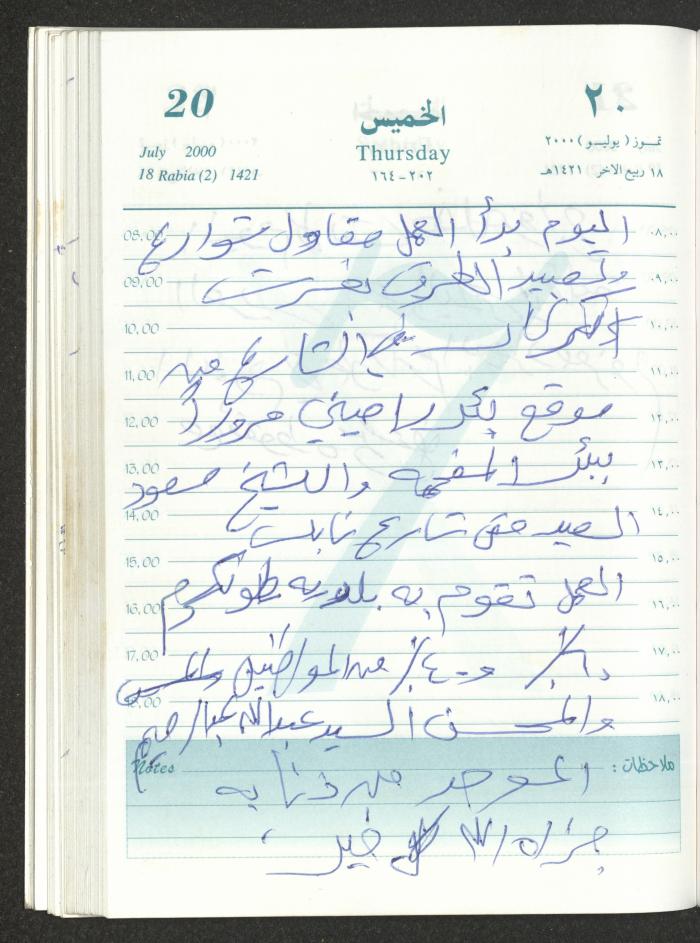 20
July 2000
18 Rabia (2) 1421
الخميس
Thursday
٢٠٢-١٦٤
٢٠
تمـوز ( يوليـو ) ٢٠٠٠
١٨ ربيع الاخر ١٤٢١هـ
08,00 اليوم بدأ العمل مقاول شوارع ٠٨,٠٠
09,00 وتعبيد الطرق ٠٩,٠٠
10,00 الشارع من ١٠,٠٠
11,00 ١١,٠٠
12,00 موقع مروراً ١٢,٠٠
13,00 ببئر والشيخ سعود ١٣,٠٠
14,00 السيد حتى شارع نابلس ١٤,٠٠
15,00 العمل تقوم به بلدية طولكرم ١٥,٠٠
16,00 ١٦,٠٠
17,00 ٦٠٪ و ٤٠٪ من المواطنين ١٧,٠٠
18,00 والمحسن السيد عبدالله عبدالرحيم ١٨,٠٠
Notes ملاحظات :
من ذنابه
جزاه الله كل خير